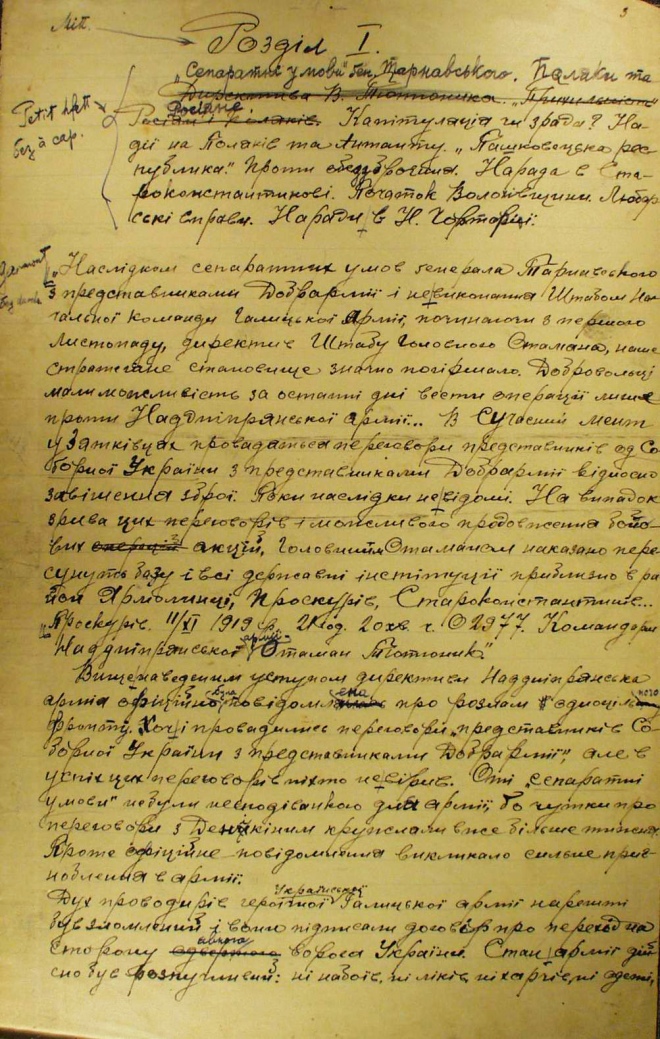 3
Розділ I.
„Сепаратні умови" ген. Тарнавського. Поляки та
Директива В. Тютюника. „Прихильність"
Росіяне
Росіян і Поляків. Капітуляція чи зрада? На-
дії на Поляків та Антанту. „Пашковецька рес-
публіка." Проти обеззброєння. Нарада в Ста-
роконстантинові. Початок Волохівщини. Любар-
ські вправи. Наради в Н. Чорториї.
Petit
без à cap.
„Наслідком сепаратних умов генерала Тарнавського
з представниками Добрармії і невиконання Штабом На-
чальної Команди Галицької Армії, починаючи з першого
листопаду, директив Штабу Головного Отамана, наше
стратегічне становище значно погіршало. Добровольці
мали можливість за останні дні вести операції лише
проти Наддніпрянської армії... В сучасний мент
у Зятківцях провадяться переговори представників од Со-
борної України з представниками Добрармії відносно
завішення зброї. Поки наслідки невідомі. На випадок
зрива цих переговорів і можливого продовження бойо-
вих операцій акцій, Головним Отаманом наказано пере-
сунуть базу і всі державні інституції приблизно в ра-
йон Ярмолинці, Проскурів, Староконстантинів...
Проскурів. 11/XI 1919 р. 21 год. 20 хв. ч. 02977. Командарм
армії
Наддніпрянської Отаман Тютюник."
Вищенаведеним уступом директиви Наддніпрянська
армія офіційно була повідомлена про розлам єдиного
фронту. Хоч і провадились переговори „представників Со-
борної України з представниками Добрармії", але в
успіх цих переговорів ніхто не вірив. Оті „сепаратні
умови" не були несподіванкою для армії, бо чутки про
переговори з Денікіним кружляли вже більше тижня.
Проте офіційне повідомлення викликало сильне приг-
ноблення в армії.
Української
Дух проводирів героїчної Галицької армії нарешті
був зломлений і вони підписали договір про перехід на
явного
сторону одвертого ворога України. Стан армії дій-
сно був розпучливий: ні набоїв, ні ліків, ні харчів, ні одежі,